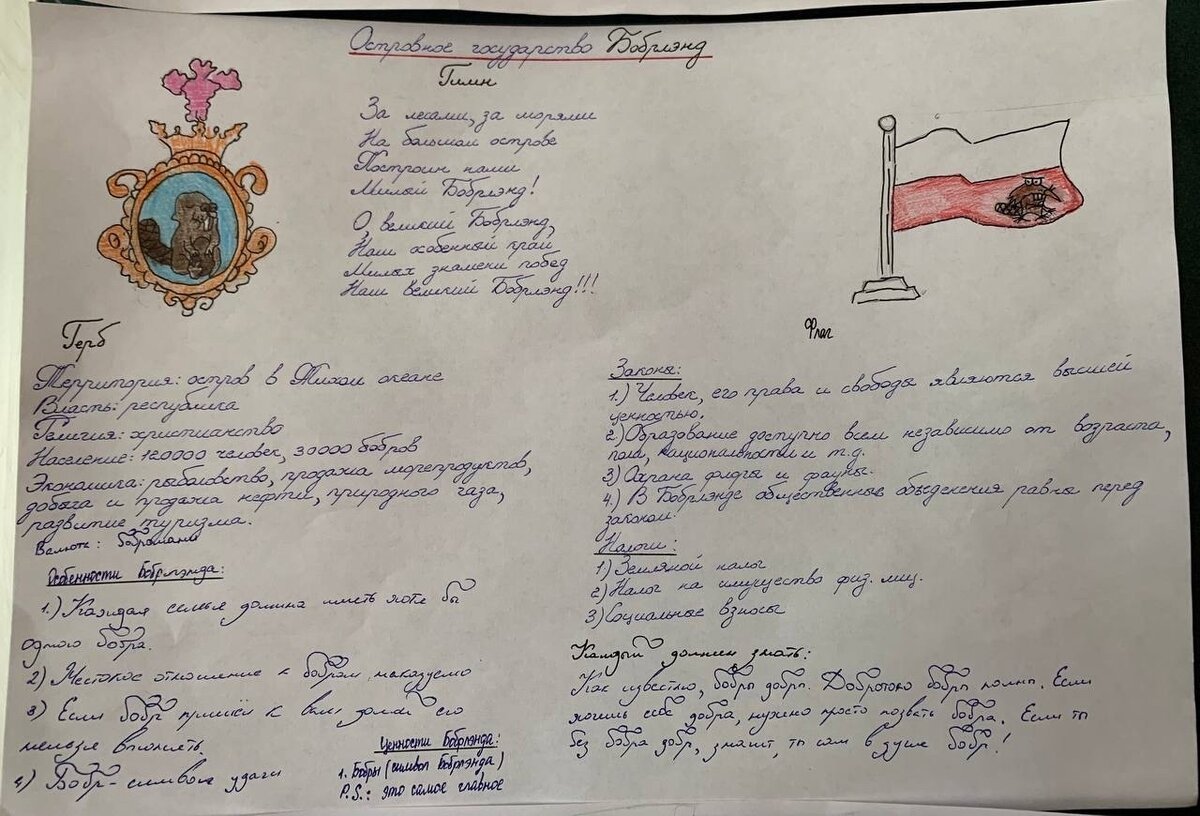 Островное государство Бобрлэнд
Гимн
За лесами, за морями
На большом острове
Построин нами
Милый Бобрлэнд!
О, великий Бобрлэнд,
Наш особенный край
Милых знамени побед
Наш великий Бобрлэнд!!!
Герб
Флаг
Территория: остров в Тихом океане
Власть: республика
Религия: христианство
Население: 120000 человек, 30000 бобров
Экономика: рыболовство, продажа морепродуктов,
добыча и продажа нефти, природного газа,
развитие туризма.
Валюта:
Особенности Бобрлэнда:
1.) Каждая семья должна иметь хотя бы
одного бобра.
2) Жестокое отношение к бобрам наказуемо
3) Если бобр пришёл к вам домой его
нельзя выгонять.
4) Бобр - символ удачи
Ценности Бобрлэнда:
1. Бобры (символ Бобрлэнда)
P.S.: это самое главное
Законы:
1.) Человек, его права и свободы являются высшей
ценностью.
2) Образование доступно всем независимо от возраста,
пола, национальности и т.д.
3) Охрана флоры и фауны.
4.) В Бобрлэнде общественные объеденения равны перед
законом.
Налоги:
1) Земляной налог
2) Налог на имущество физ. лиц.
3) Социальные взносы
Каждый должен знать:
Как известно, бобры добры. Добротою бобры полны. Если
хочешь себе добра, нужно просто позвать бобра. Если ты
без бобра добр, значит, ты сам в душе бобр!